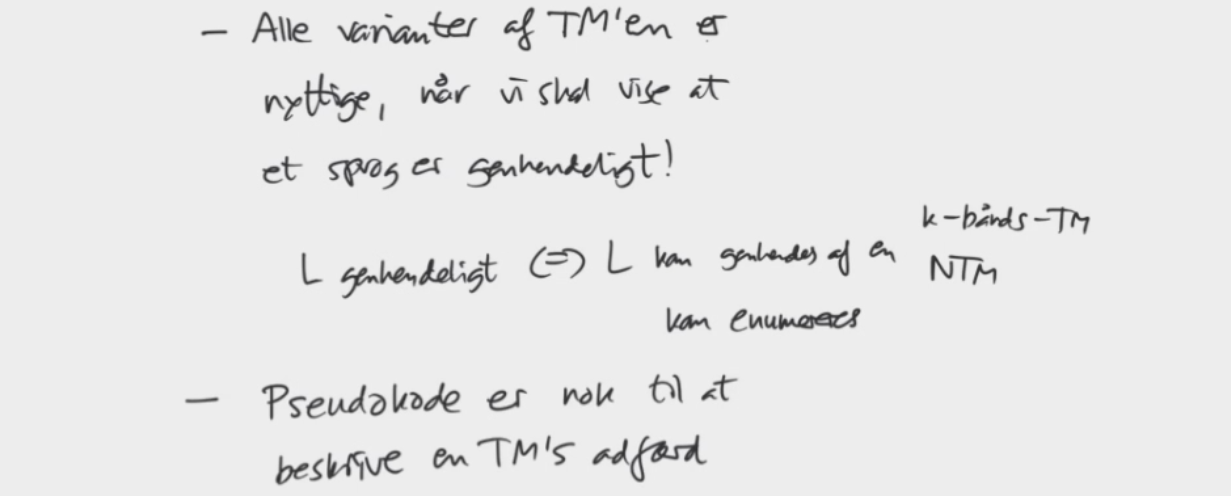 - Alle varianter af TM'en er
nyttige, når vi skal vise at
et sprog er genkendeligt!
k-bånds-TM
L genkendeligt <=> L kan genkendes af en NTM
kan enumereres
- Pseudokode er nok til at
beskrive en TM's adfærd